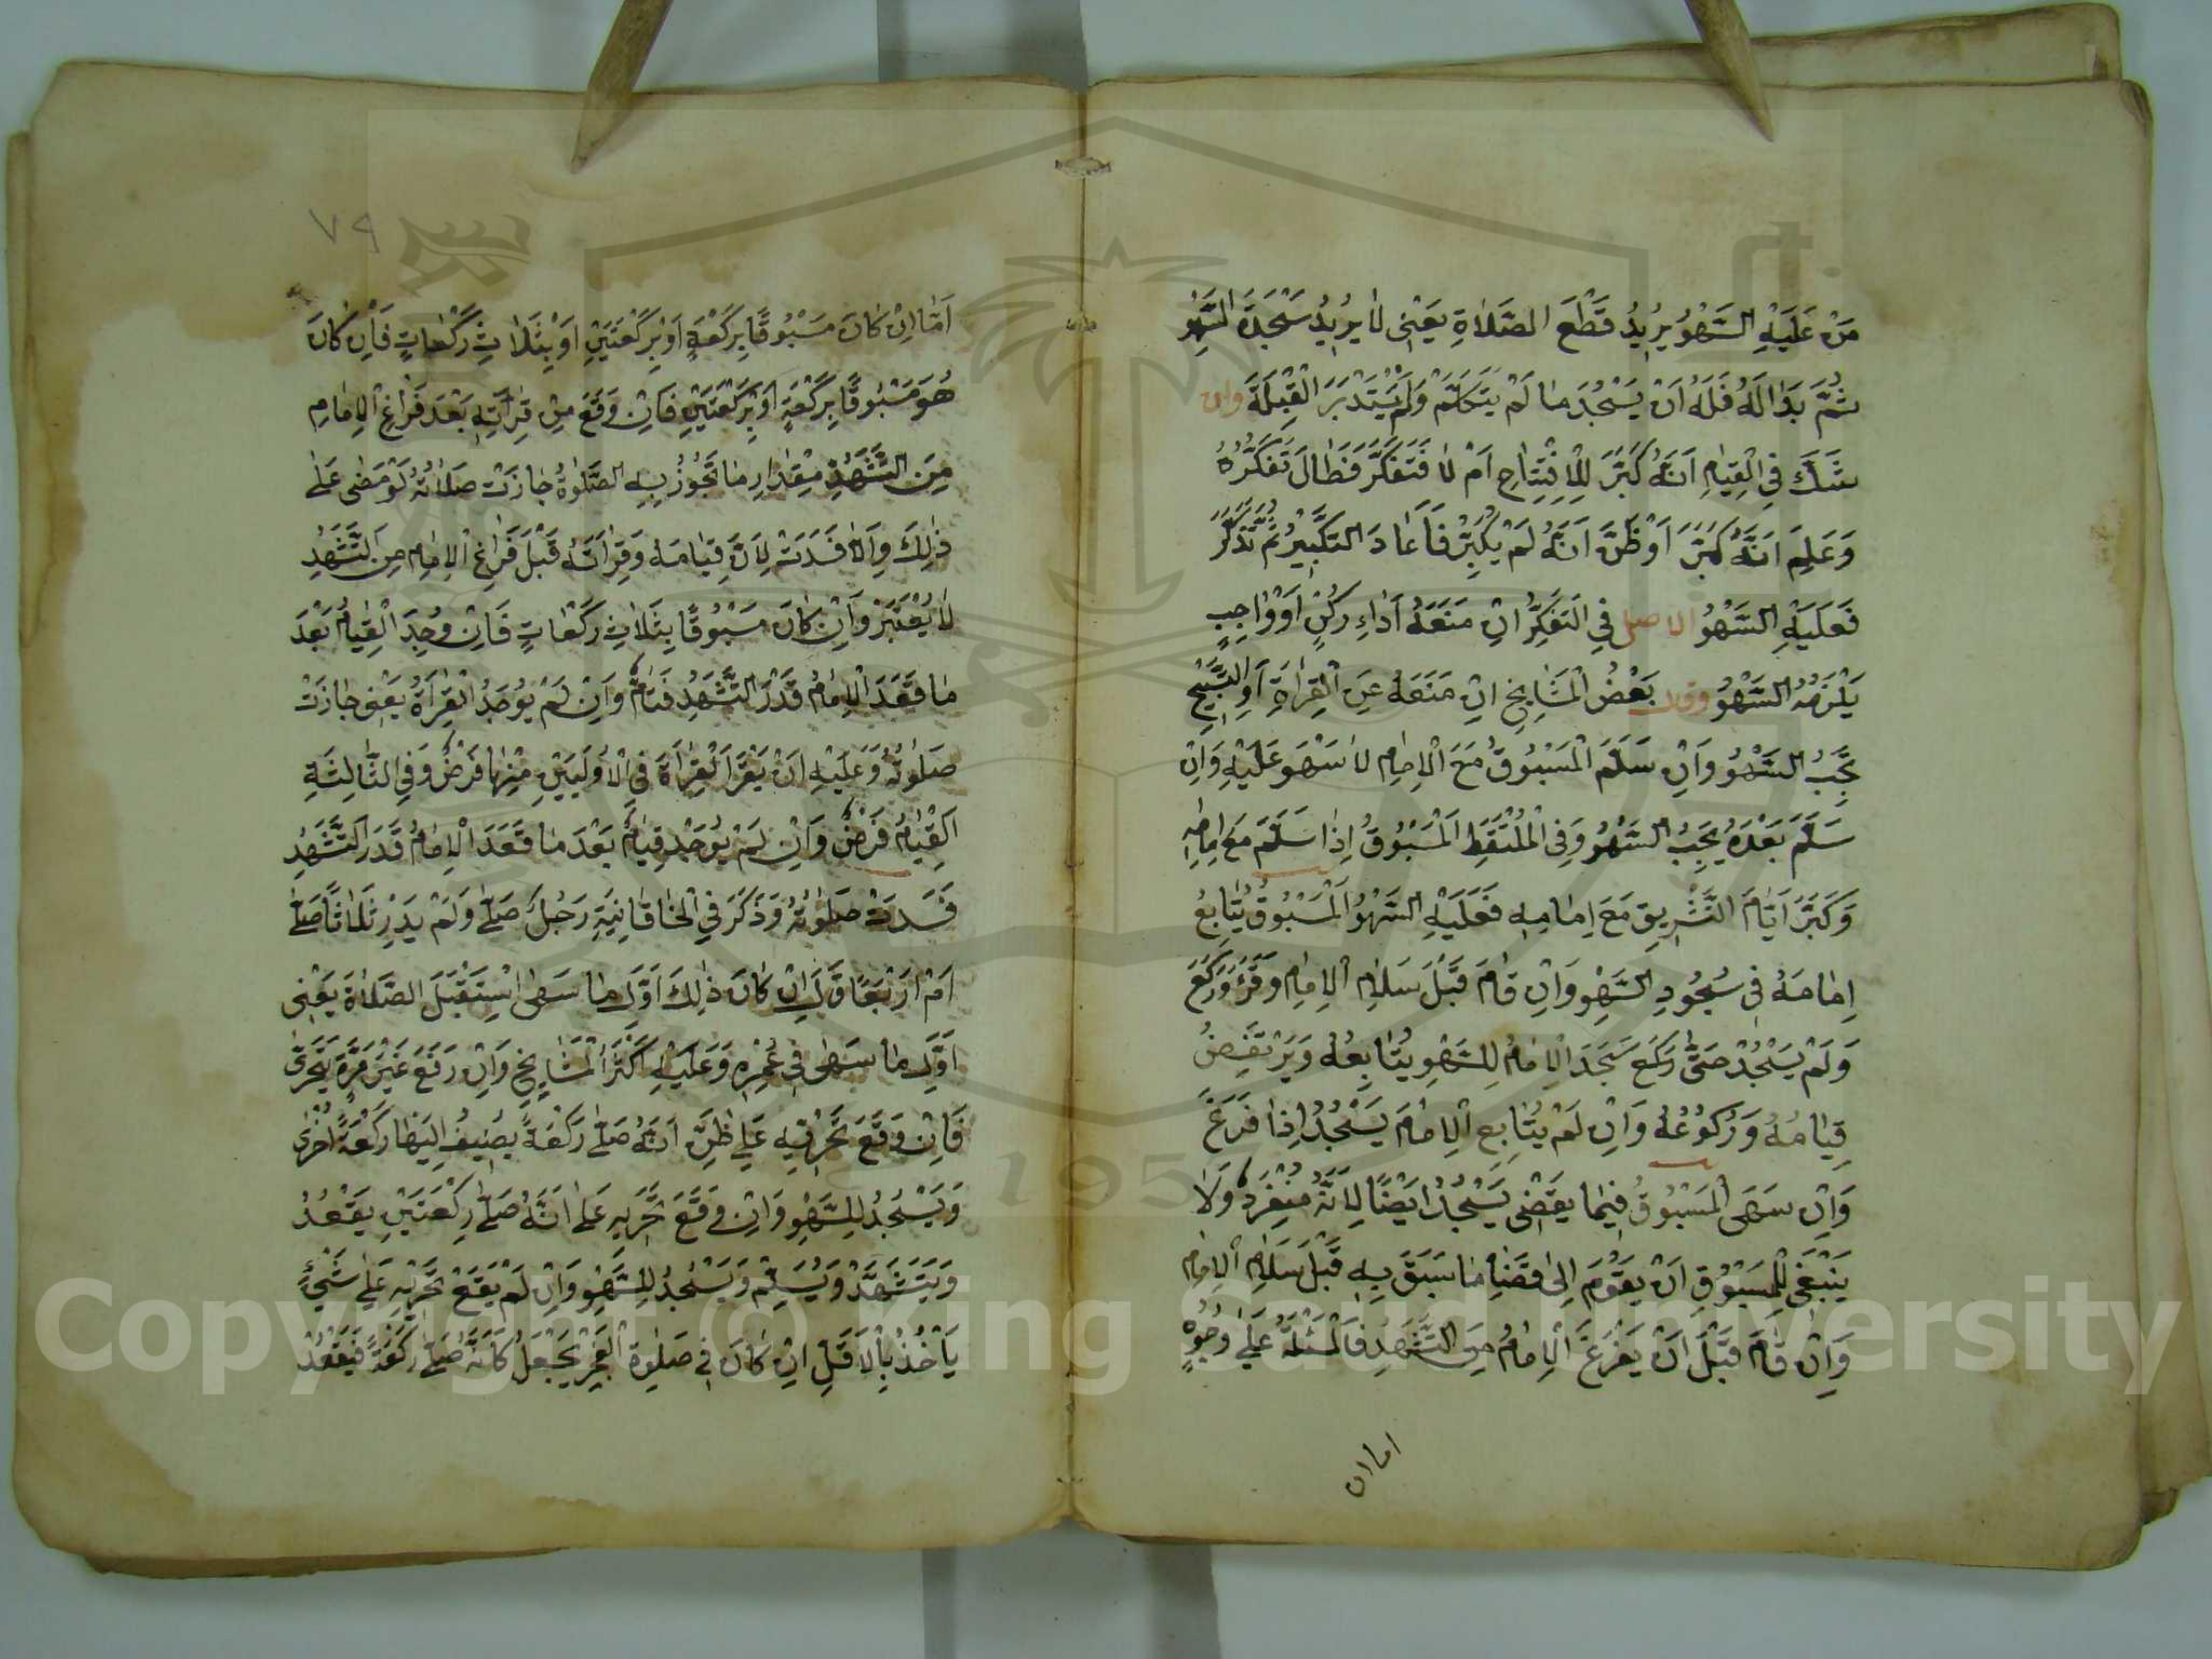 مَنْ عَلَيْهِ السَّهْوُ يُرِيدُ قَطْعَ الصَّلاةِ يَعْنِى لَا يُرِيدُ سَجْدَةَ السَّهْوِ
ثُمَّ بَدَالَهُ فَلَهُ اَنْ يَسْجُدَ مَا لَمْ يَتَكَلَّمْ وَلَمْ يَسْتَدْبِرَ الْقِبْلَةَ وان
شَكَّ فِى الْقِيَامِ اَنَّهُ كَبَّرَ لِلْاِفْتِتَاحِ اَمْ لَا فَتَفَكَّرَ فَطَالَ تَفَكُّرُهُ
وَعَلِمَ اَنَّهُ كَبَّرَ اَوْ ظَنَّ اَنَّهُ لَمْ يُكَبِّرْ فَاَعَادَ التَّكْبِيرُ ثُمَّ تَذَكَّرَ
فَعَلَيْهِ السَّهْوُ الاصل فِى التَّفَكُّرُ اِنْ مَنَعَهُ اَدَاءِ رُكْنٍ اَوْ وَاجِبٍ
يَلْزَمُهُ السَّهْوُ وقال بَعْضُ الْمَشَايِخِ اِنْ مَنَعَهُ عَنِ الْقِرَاةِ اَوِ التَّسْبِيحِ
يَجِبُ السَّهْوُ وَاِنْ سَلَّمَ الْمَسْبُوقُ مَعَ الْاِمَامِ لَا سَهْوَ عَلَيْهِ وَاِنْ
سَلَّمَ بَعْدَهُ يَجِبُ السَّهْوُ وَفِى الْمُلْتَقَطِ اَلْمَسْبُوقُ اِذَا سَلَّمَ مَعَ اِمَامِهِ
وَكَبَّرَ اَيَّامَ التَّشْرِيقِ مَعَ اِمَامِهِ فَعَلَيْهِ السَّهْوُ اَلْمَسْبُوقُ يُتَابِعُ
اِمَامَهُ فِى سُجُودِ السَّهْوِ وَاِنْ قَامَ قَبْلَ سَلَامِ الْاِمَامِ وَقَرَءَ وَرَكَعَ
وَلَمْ يَسْجُدْ حَتَّى رَكَعَ سَجَدَ الْاِمَامُ لِلسَّهْوِ يُتَابِعُهُ وَيَرْتَفِضُ
قِيَامُهُ وَرُكُوعُهُ وَاِنْ لَمْ يُتَابِعِ الْاِمَامَ يَسْجُدُ اِذَا فَرَغَ
وَاِنْ سَهَى الْمَسْبُوقُ فِيمَا يَقْضِى يَسْجُدُ اَيْضًا لِاَنَّهُ مُنْفَرِدٌ وَلَا
يَنْبَغِى لِلْمَسْبُوقِ اَنْ يَقُومَ اِلَى قَضَاءِ مَا سَبَقَ بِهِ قَبْلَ سَلَامِ الْاِمَامِ
وَاِنْ قَامَ قَبْلَ اَنْ يَفْرَغَ الْاِمَامُ مِنَ التَّشَهُّدِ فَالْمَسْئَلَةُ عَلَى وُجُوهٍ
اما ان
٧٩
اَمَّا اِنْ كَانَ مَسْبُوقًا بِرَكْعَةٍ اَوْ بِرَكْعَتَيْنِ اَوْ بِثَلَاثِ رَكْعَاتٍ فَاِنْ كَانَ
هُوَ مَسْبُوقًا بِرَكْعَةٍ اَوْ بِرَكْعَتَيْنِ فَاِنْ وَقَعَ مِنْ قِرَاتِهِ بَعْدَ فَرَاغِ الْاِمَامِ
مِنَ التَّشَهُّدِ مِقْدَارِ مَا تَجُوزُ بِهِ الصَّلوةُ جَازَتْ صَلَاتُهُ لَوْ مَضَى عَلَى
ذَلِكَ وَاِلَّا فَسَدَتْ لِاَنَّ قِيَامَهُ وَقِرَاَتَهُ قَبْلَ فَرَاغِ الْاِمَامِ مِنَ التَّشَهُّدِ
لَا يُعْتَبَرْ وَاِنْ كَانَ مَسْبُوقًا بِثَلَاثِ رَكْعَاتٍ فَاِنْ وُجِدَ الْقِيَامُ بَعْدَ
مَا قَعَدَ الْاِمَامُ قَدْرَ التَّشَهُّدِ قِيَامٌ وَاِنْ لَمْ يُوجَدُ الْقِرَاَةُ يَعْنِى جَازَتْ
صَلوتُهُ وَعَلَيْهِ اَنْ يَقْرَا الْقِرَاَةَ فِى الْاُولَيَيْنِ مِنْهَا فَرْضٌ وَفِى الثَّالِثَةِ
اَلْقِيَامُ فَرْضٌ وَاِنْ لَمْ يُوجَدْ قِيَامٌ بَعْدَ مَا قَعَدَ الْاِمَامُ قَدَرَ التَّشَهُّدِ
فَسَدَتْ صَلوتُهُ وَذَكَرَ فِى الْخَاقَانِيَةِ رَجُلٌ صَلَّى وَلَمْ يَدْرِ ثَلَاثًا صَلَّى
اَمْ اَرْبَعًا قَالَ اِنْ كَانَ ذَلِكَ اَوَّلَ مَا سَهَى اِسْتَقْبَلَ الصَّلَاةَ يَعْنِى
اَوَّلَ مَا سَهَى فِى عُمْرِهِ وَعَلَيْهِ اَكْثَرُ الْمَشَايِخِ وَاِنْ رَفَعَ غَيْرَ مَرَّةٍ يَتَحَرَّى
فَاِنْ وَقَعَ تَحَرِّيهِ عَلَى ظَنِّ اَنَّهُ صَلَّى رَكْعَةً يُضِيفُ اِلَيْهَا رَكْعَةً اُخْرَى
وَيَسْجُدُ لِلسَّهْوِ وَاِنْ وَقَعَ تَحَرِّيهِ عَلَى اَنَّهُ صَلَّى رَكْعَتَيْنِ يَقْعُدُ
وَيَتَشَهَّدْ وَيُسَلِّمْ وَيَسْجُدُ لِلسَّهْوِ وَاِنْ لَمْ يَقَعْ تَحَرِّيهِ عَلَى شَئٍ
يَأْخُذُ بِالْاَقَلِّ اِنْ كَانَ فِى صَلوةِ الْفَجْرِ يَجْعَلُ كَاَنَّهُ صَلَّى رَكْعَةً فَيَقْعُدُ
Copyright © King Saud University
195